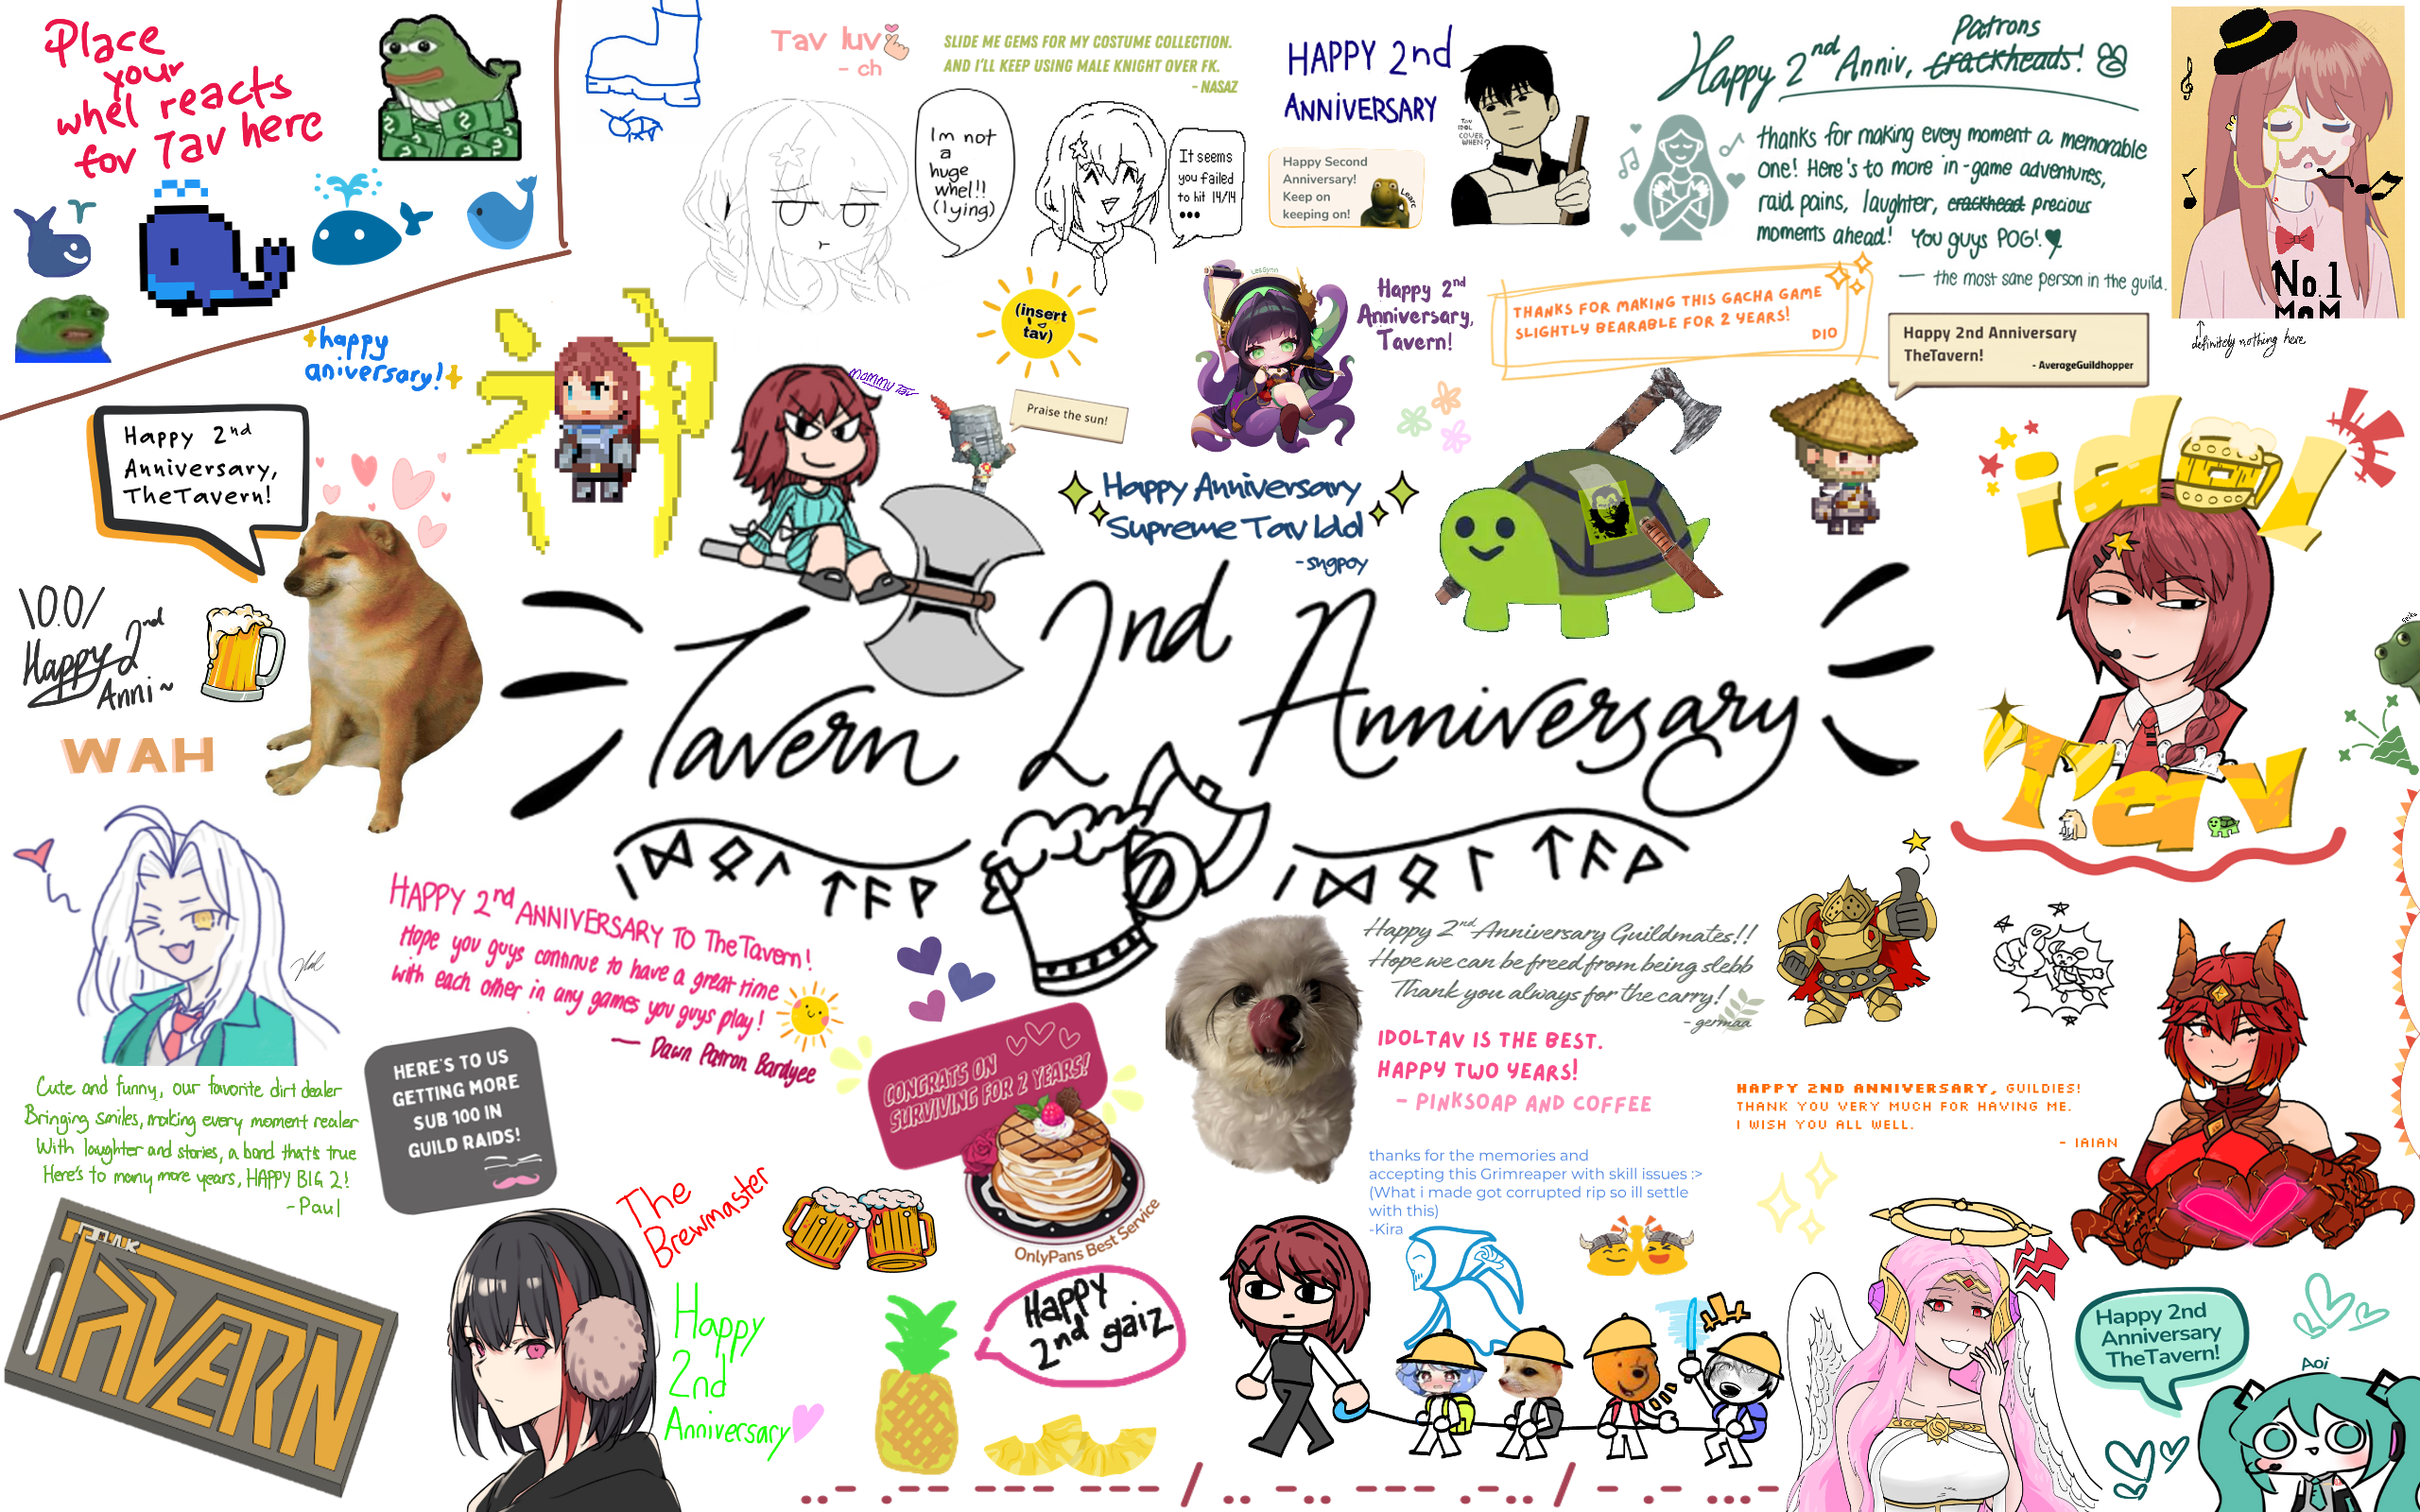 Place
your
whel reacts
for Tav here
Tav luv
- ch
SLIDE ME GEMS FOR MY COSTUME COLLECTION.
AND I'LL KEEP USING MALE KNIGHT OVER FK.
- NASAZ
Im not
a
huge
whel!!
(lying)
It seems
you failed
to hit 14/14
•••
HAPPY 2nd
ANNIVERSARY
Happy Second
Anniversary!
Keep on
keeping on!
Learc
TAV
IDOL
COVER
WHEN?
Patrons
Happy 2nd Anniv, crackheads!
thanks for making every moment a memorable
one! Here's to more in-game adventures,
raid pains, laughter, crackhead precious
moments ahead! You guys POG!
— the most sane person in the guild.
No.1
MOM
definitely nothing here
happy
aniversary!
mommy Tav
(insert
tav)
Praise the sun!
LesBynn
Happy 2nd
Anniversary,
Tavern!
THANKS FOR MAKING THIS GACHA GAME
SLIGHTLY BEARABLE FOR 2 YEARS!
DIO
Happy 2nd Anniversary
TheTavern!
- AverageGuildhopper
Happy 2nd
Anniversary,
TheTavern!
Happy Anniversary
Supreme Tav Idol
- sngpoy
idol
Tav
\0.0/
Happy 2nd
Anni~
WAH
Tavern 2nd Anniversary
ᛁᛞᛟᛚ ᛏᚨᚹ
ᛁᛞᛟᛚ ᛏᚨᚹ
HAPPY 2nd ANNIVERSARY TO TheTavern!
Hope you guys continue to have a great time
with each other in any games you guys play!
— Dawn Patron Bardyee
Happy 2nd Anniversary Guildmates!!
Hope we can be freed from being slebb
Thank you always for the carry!
- germaa
IDOLTAV IS THE BEST.
HAPPY TWO YEARS!
- PINKSOAP AND COFFEE
HAPPY 2ND ANNIVERSARY, GUILDIES!
THANK YOU VERY MUCH FOR HAVING ME.
I WISH YOU ALL WELL.
- IAIAN
Cute and funny, our favorite dirt dealer
Bringing smiles, making every moment realer
With laughter and stories, a bond that's true
Here's to many more years, HAPPY BIG 2!
- Paul
HERE'S TO US
GETTING MORE
SUB 100 IN
GUILD RAIDS!
CONGRATS ON
SURVIVING FOR 2 YEARS!
OnlyPans Best Service
thanks for the memories and
accepting this Grimreaper with skill issues :>
(What i made got corrupted rip so ill settle
with this)
-Kira
TAVERN
The
Brewmaster
Happy
2nd
Anniversary
Happy
2nd gaiz
Happy 2nd
Anniversary
TheTavern!
Aoi
..- .-- --- / .. -.. --- .-.. / - .- ...-